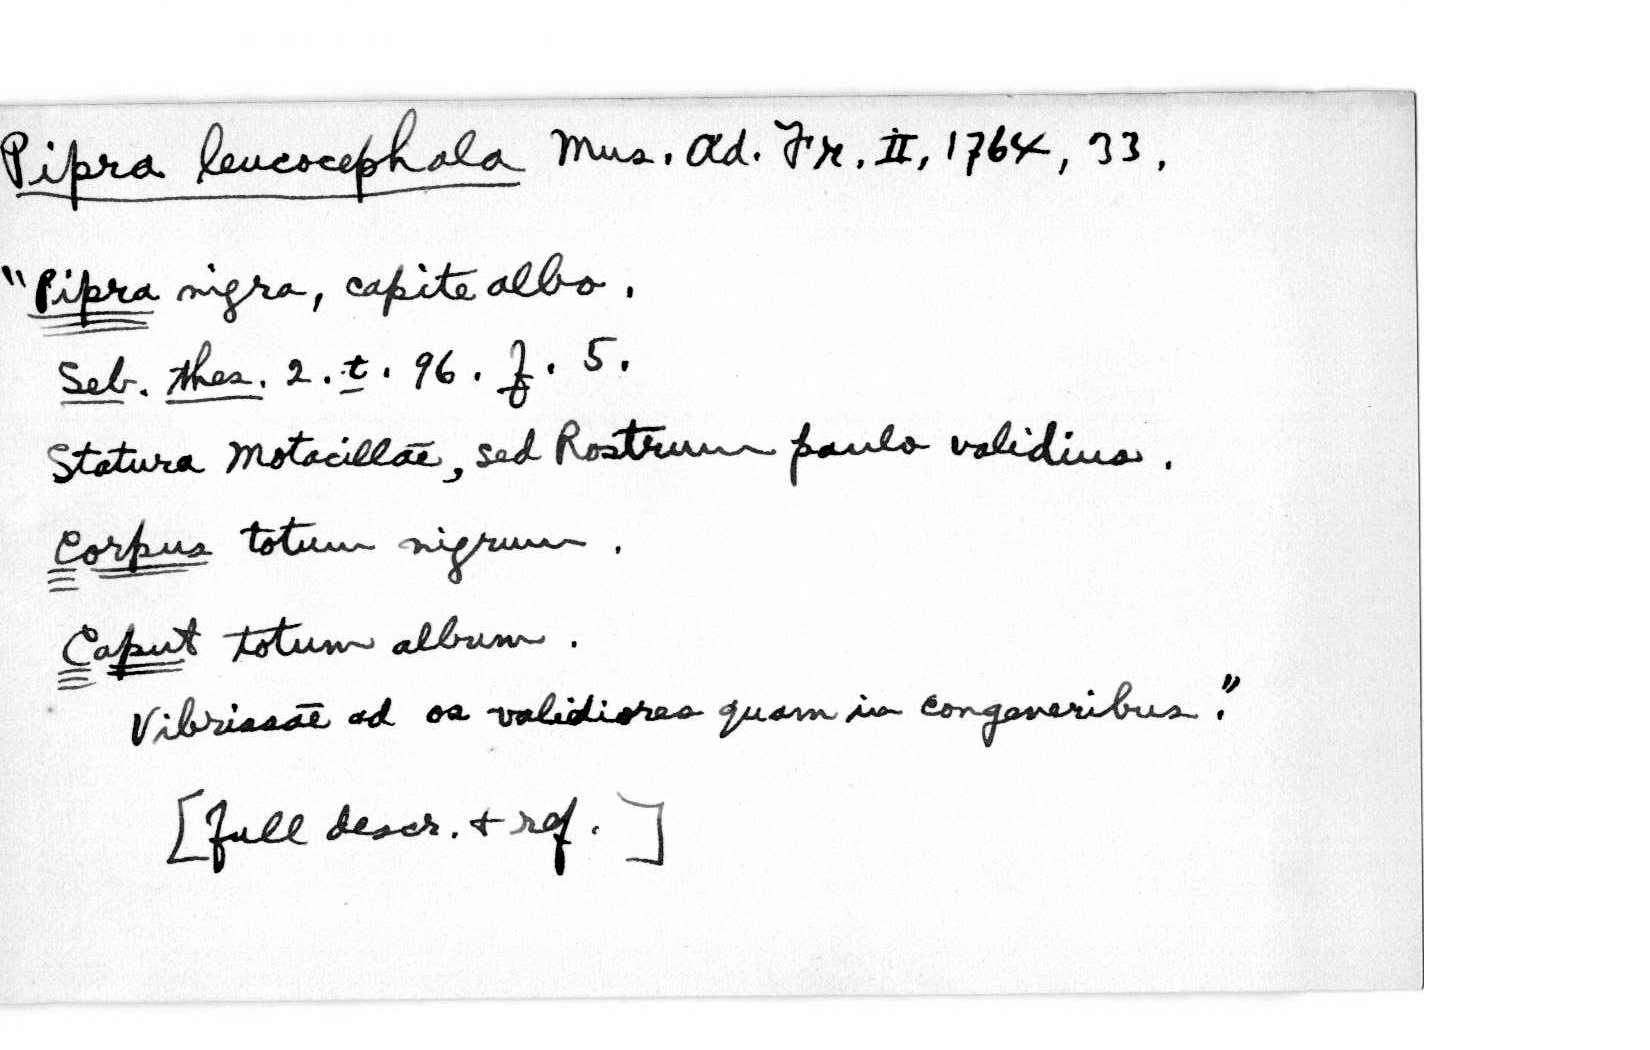 Pipra leucocephala Mus. Ad. Fr. II, 1764, 33.
"Pipra nigra, capite albo.
Seb. thes. 2. t. 96. f. 5.
Statura Motacillae, sed Rostrum paulo validius.
Corpus totum nigrum.
Caput totum album.
Vibrissae ad os validiores quam in congeneribus."
[full descr. + ref.]